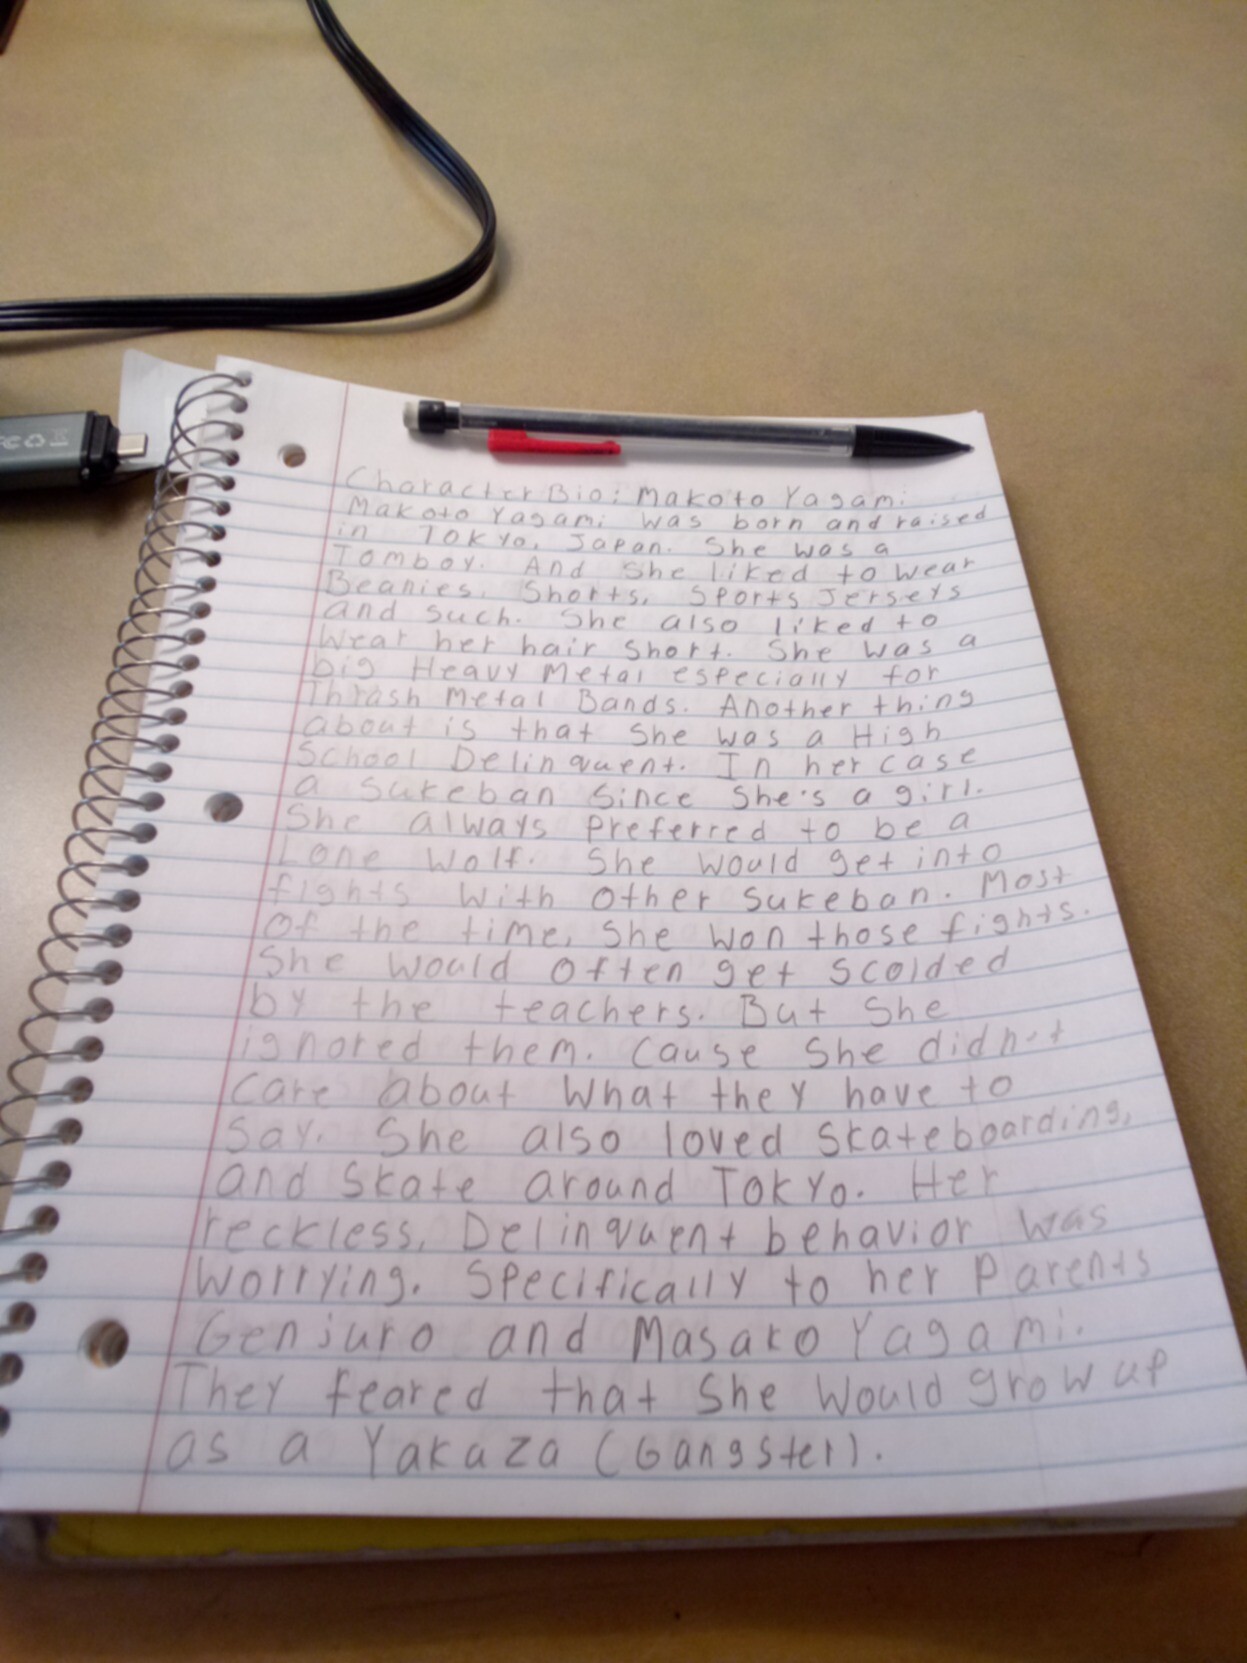 Character Bio: Makoto Yagami
Makoto Yagami was born and raised
in Tokyo, Japan. She was a
Tomboy. And she liked to wear
Beanies, Shorts, Sports Jerseys
and such. She also liked to
wear her hair short. She was a
big Heavy Metal especially for
Thrash Metal Bands. Another thing
about is that she was a High
School Delinquent. In her case
a Sukeban since she's a girl.
She always preferred to be a
Lone Wolf. She would get into
fights with other Sukeban. Most
of the time, she won those fights.
She would often get scolded
by the teachers. But she
ignored them. Cause she didn't
care about what they have to
say. She also loved skateboarding,
and skate around Tokyo. Her
reckless, Delinquent behavior was
worrying. Specifically to her parents
Genjuro and Masako Yagami.
They feared that she would grow up
as a Yakaza (Gangster).
FC